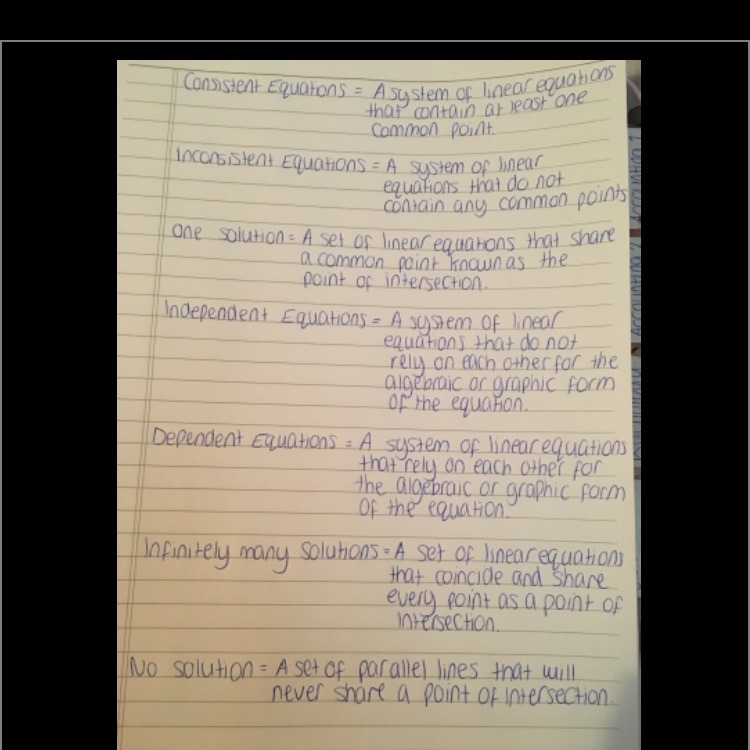 Consistent Equations = A system of linear equations
that contain at least one
common point.
Inconsistent Equations = A system of linear
equations that do not
contain any common points
one solution = A set of linear equations that share
a common point known as the
point of intersection.
Independent Equations = A system of linear
equations that do not
rely on each other for the
algebraic or graphic form
of the equation.
Dependent Equations = A system of linear equations
that rely on each other for
the algebraic or graphic form
of the equation.
Infinitely many solutions = A set of linear equations
that coincide and share
every point as a point of
intersection.
No solution = A set of parallel lines that will
never share a point of intersection.
ACCOUNTING 1
ACCOUNTING 2